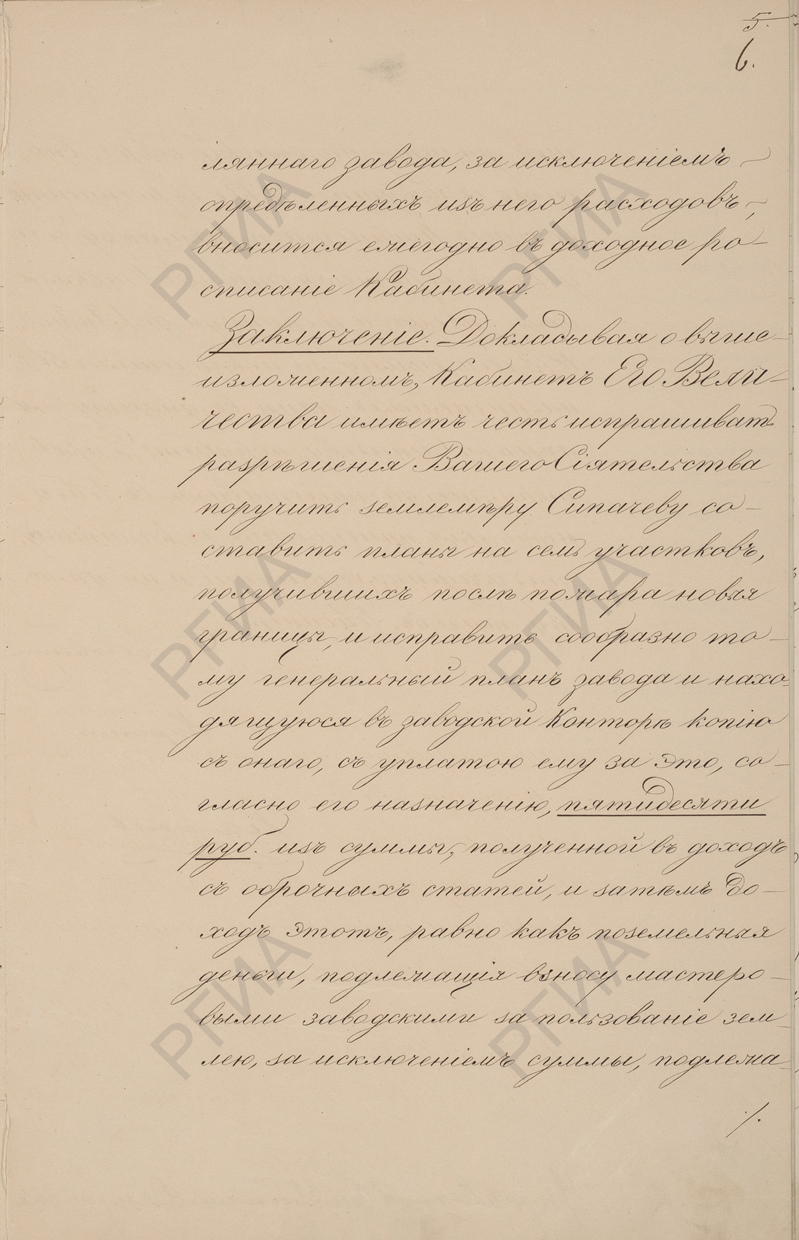 5.
6.
ляннаго завода, за исключеніемъ
опредѣленныхъ изъ него расходовъ,
вносится ежегодно въ доходное ро-
списаніе Кабинета.
Заключеніе. Докладывая о выше-
изложенномъ, Кабинетъ Его Вели-
чества имѣетъ честь испрашивать
разрѣшенія Вашего Сіятельства
поручить землемѣру Сипачеву со-
ставить планы на семь участковъ,
получившихъ послѣ пожара новыя
границы, и исправить сообразно то-
му генеральный планъ завода и нахо-
дящуюся въ заводской Конторѣ копію
съ онаго, съ уплатою ему за это, со-
гласно его назначенію, пятидесяти
руб. изъ суммы, полученной въ доходъ
съ оброчныхъ статей, и затѣмъ до-
ходъ этотъ, равно какъ поземельныя
деньги, подлежащія взносу мастеро-
выми заводскими за пользованіе зем-
лею, за исключеніемъ суммы, подлежа-
./.
РГИА
РГИА
РГИА
РГИА
РГИА
РГИА